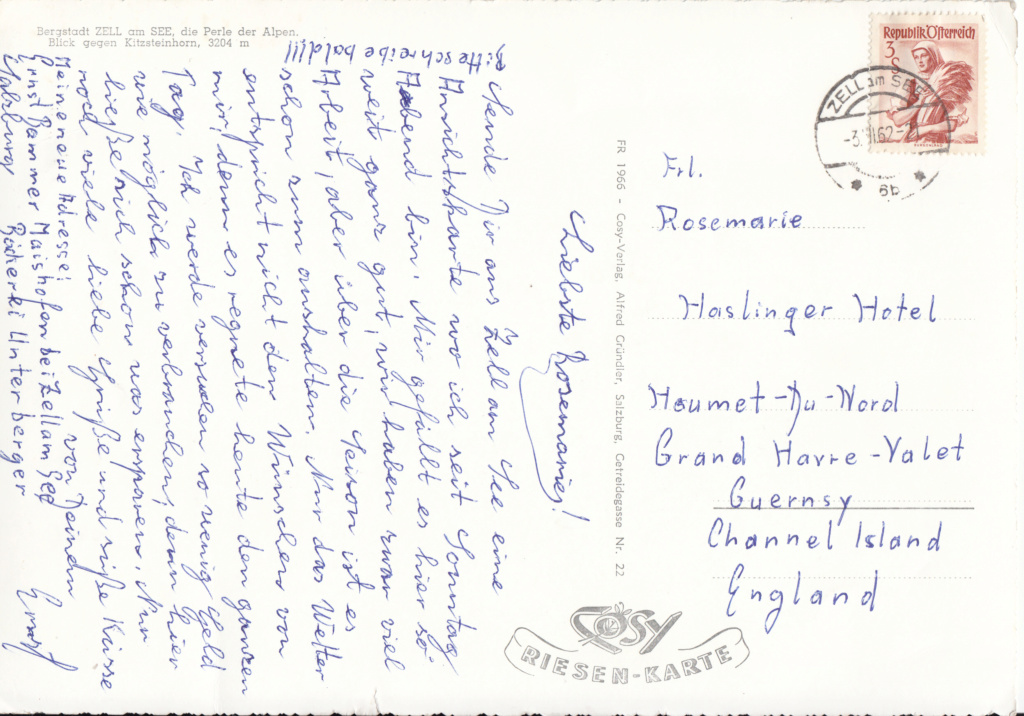 Bergstadt ZELL am SEE, die Perle der Alpen.
Blick gegen Kitzsteinhorn, 3204 m
Bitte schreibe bald!!!
Liebste Rosemarie!
Sende Dir aus Zell am See eine
Ansichtskarte wo ich seit Sonntag
Abend bin. Mir gefällt es hier so
weit ganz gut, wir haben zwar viel
Arbeit, aber über die Seison ist es
schon zum aushalten. Nur das Wetter
entspricht nicht den Wünschen von
mir, denn es regnete heute den ganzen
Tag. Ich werde versuchen so wenig Geld
wie möglich zu verbrauchen, denn hier
ließe sich schon was ersparen. Nun
noch viele liebe Grüße und süße Küsse
von Deinem
Ernst
Meine neue Adresse:
Ernst Bammer Maishofen bei Zell am See
Bäckerei Unterberger
Salzburg
FR 1966 - Cosy-Verlag, Alfred Gründler, Salzburg, Getreidegasse Nr. 22
COSY
RIESEN-KARTE
REPUBLIK ÖSTERREICH
3 S
ZELL am SEE
62
6b
Frl.
Rosemarie
Haslinger Hotel
Houmet-Du-Nord
Grand Havre-Valet
Guernsy
Channel Island
England